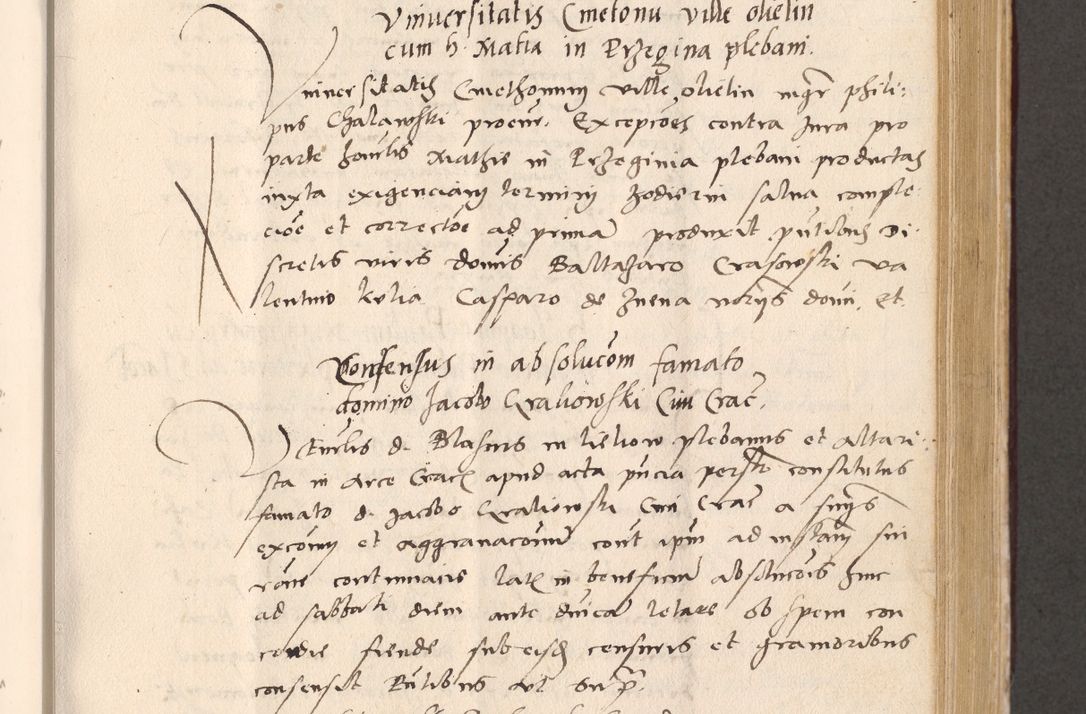 Vniuersitatis Cmetonu ville olielin
cum h. Mathia in Przegina plebani.
Vniuersitatis Cmethonum ville olielin mgr phili:
pus Chalawski procur. Excepcões contra Jura pro
parte honrlis Mathie in Przeginia plebani productas
iuxta exigenciam termini hodierni salua comple:
cioẽ et correctõe ad primã produxit pñtibus Di:
scretis viris domis Baltazaro Crasowski va
lentino kelia Casparo de Juena norys domi. et
Consensus in absolucõm famato
domino Jacobo Graliowski Ciui Crac.
Venrlis d. Blasius in lielow plebanus et altari:
sta in Arce Crac apud acta pñcia persr constitutus
famato d. Jacobo Graliowski Ciui Crac a suys
excõm et aggrauacõnum cont ipm ad instam sui
rõne contumacie lat in beneficiũ absolucõis hinc
ad sabbati diem ante dnicã letare ob spem con
cordie fiende sub eisd censuris et grauioribus
consensit Pntibus vt supr.